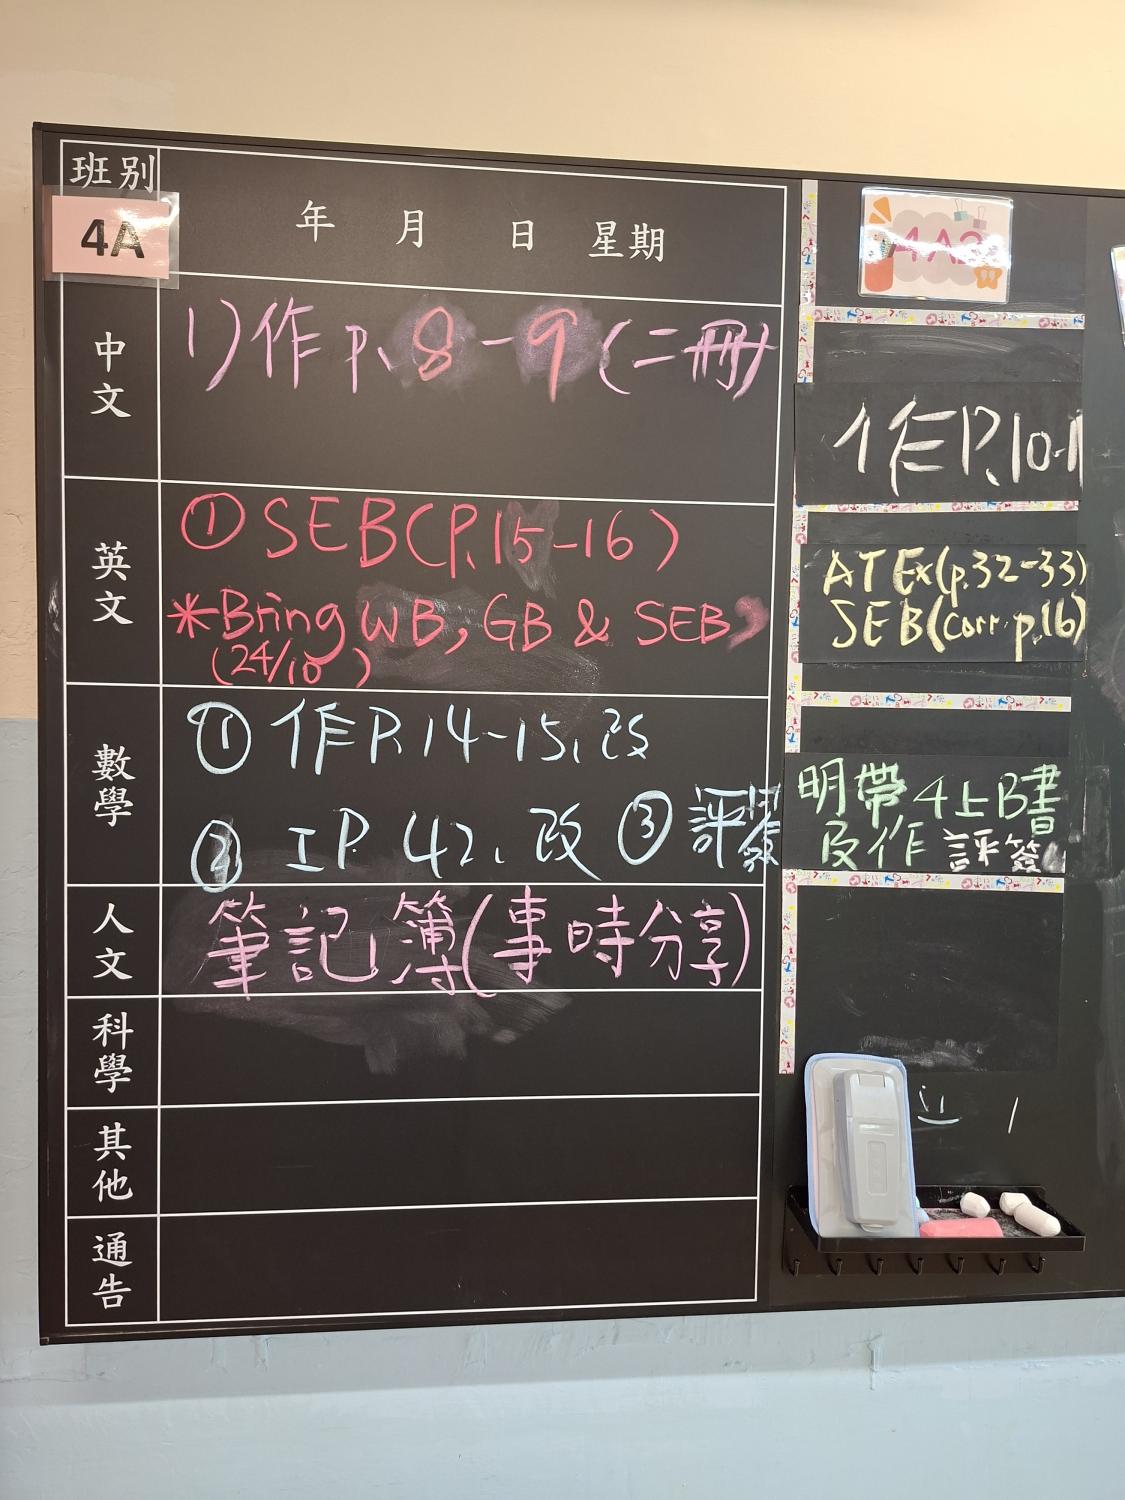 班別
4A
年 月 日 星期
中文
1)作 p.8-9(二冊)
英文
①SEB(P.15-16)
*Bring WB, GB & SEB
(24/10 )
數學
①作P.14-15、改
② IP.42、改 ③評簽
人文
筆記簿(事時分享)
科學
其他
通告
4A2
作P.10-1
AT Ex(p.32-33)
SEB(corr p.16)
明帶4上B書
及作 評簽